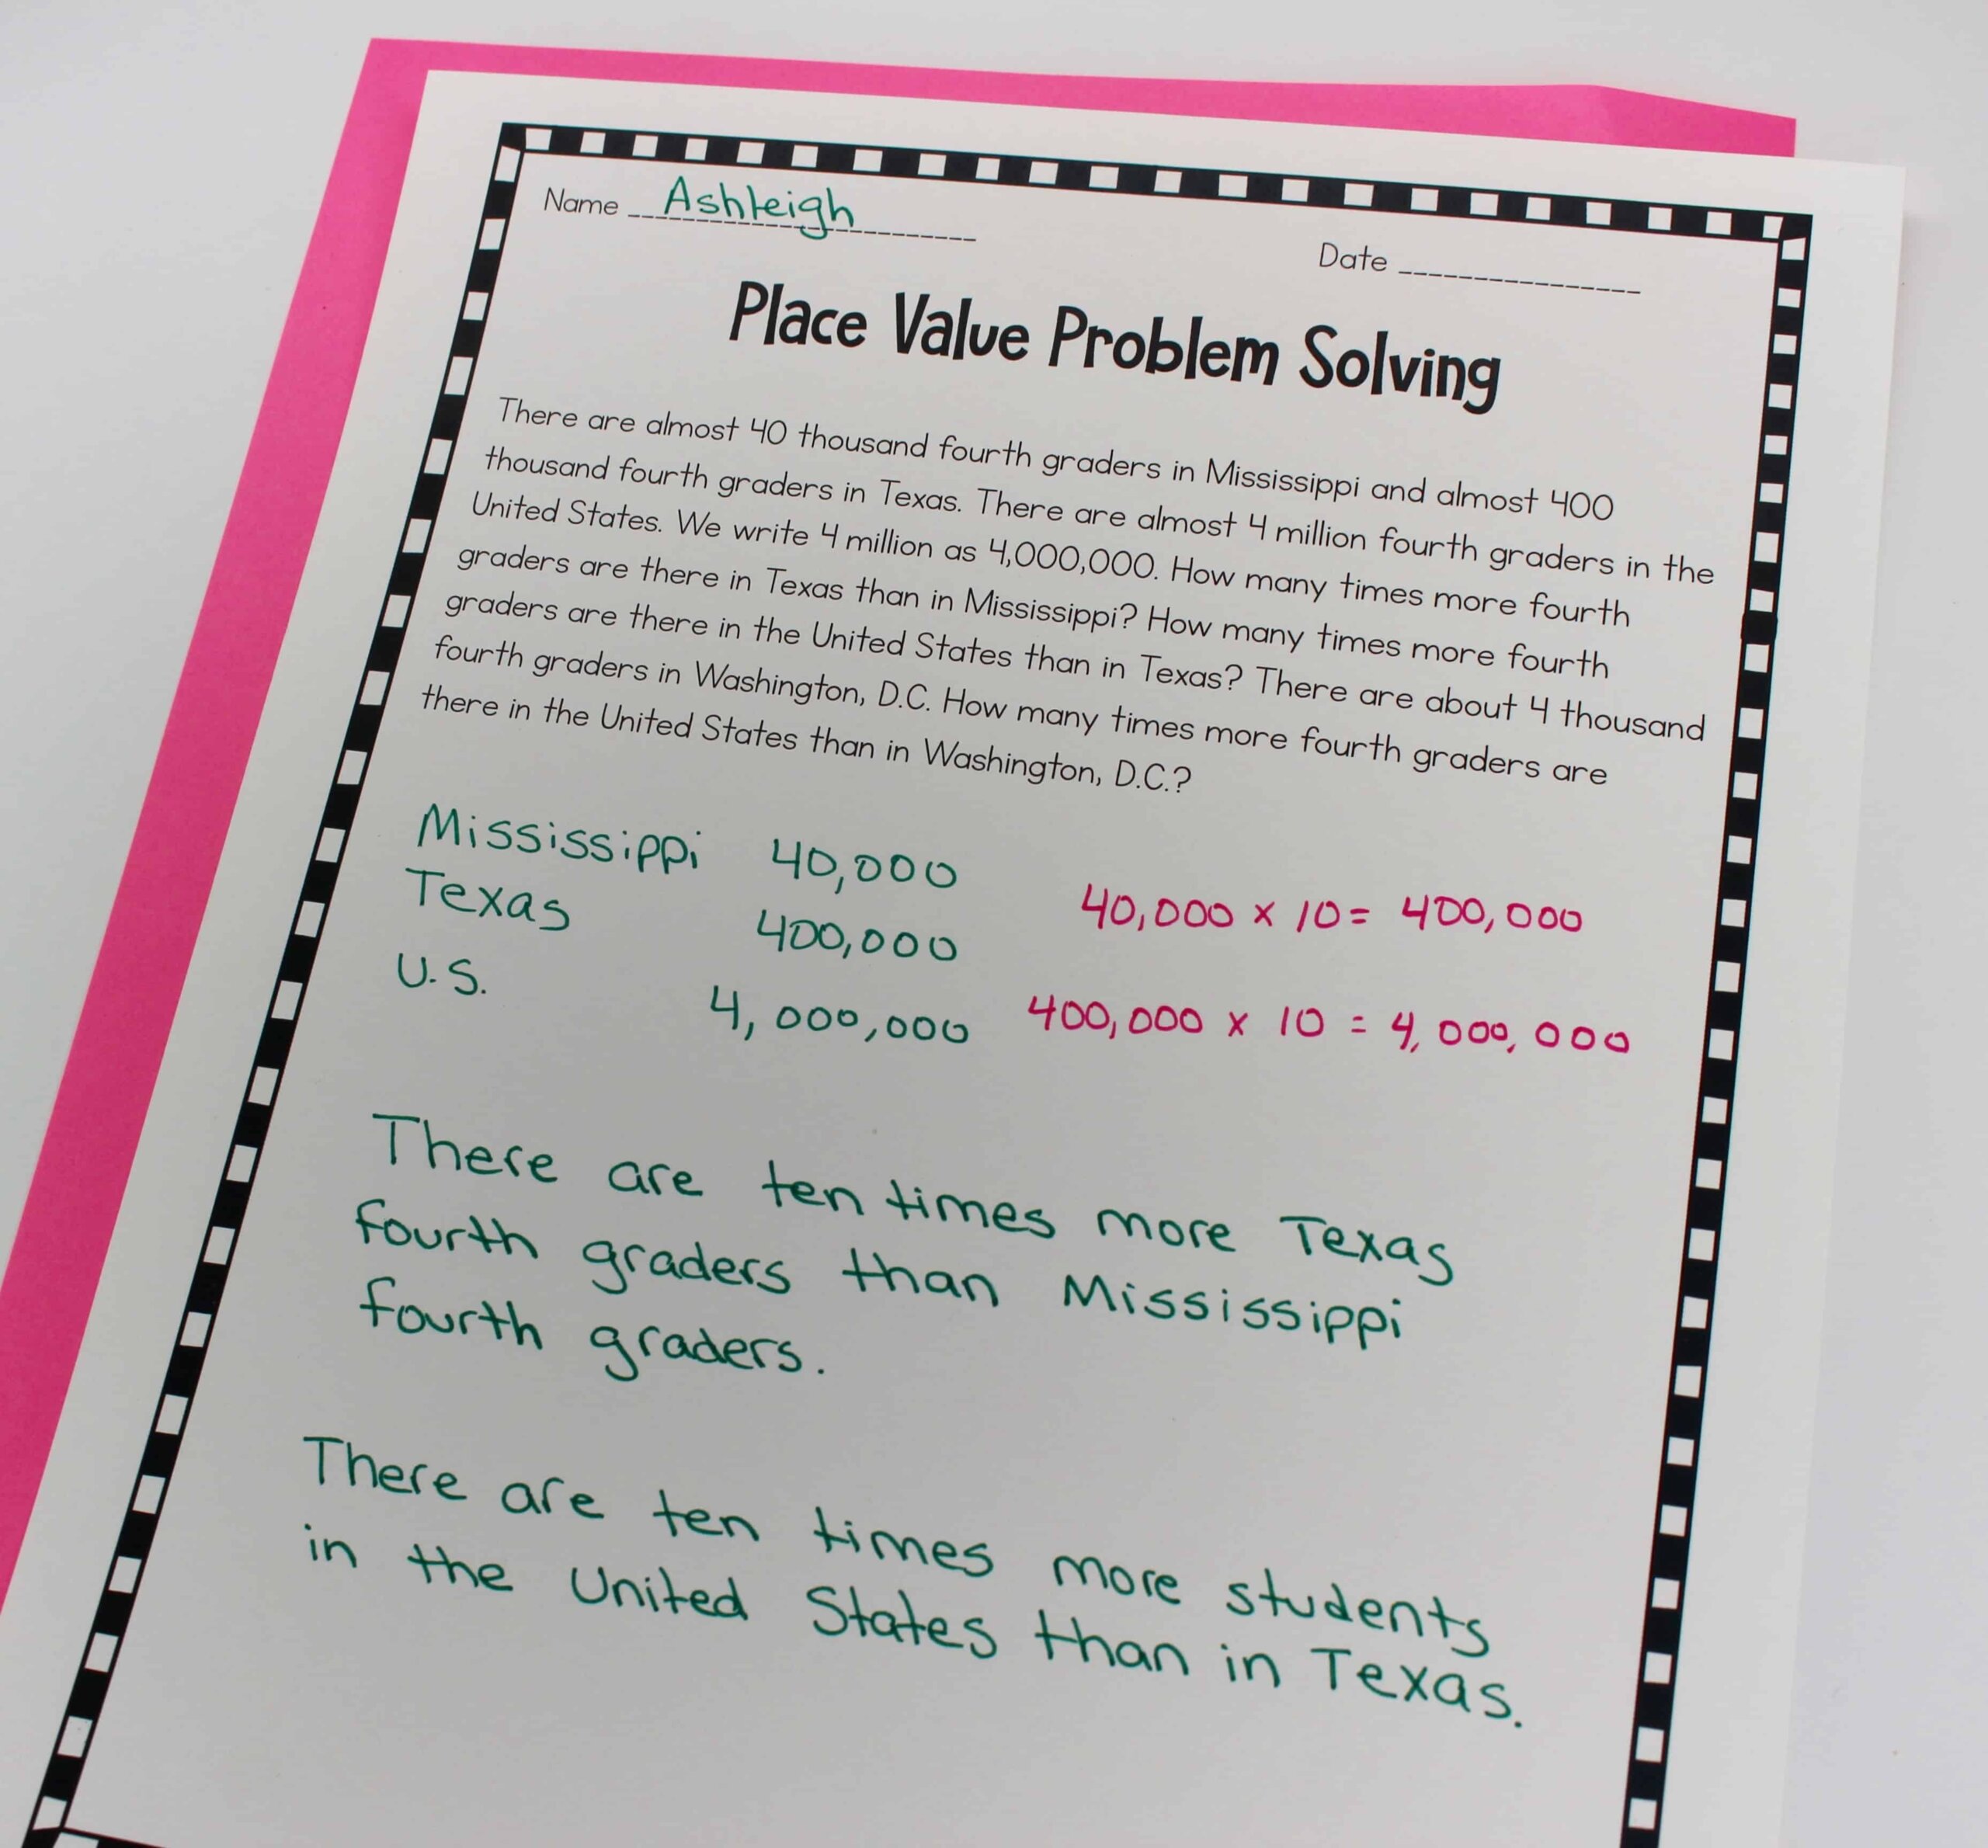 Name Ashleigh
Date
Place Value Problem Solving
There are almost 40 thousand fourth graders in Mississippi and almost 400
thousand fourth graders in Texas. There are almost 4 million fourth graders in the
United States. We write 4 million as 4,000,000. How many times more fourth
graders are there in Texas than in Mississippi? How many times more fourth
graders are there in the United States than in Texas? There are about 4 thousand
fourth graders in Washington, D.C. How many times more fourth graders are
there in the United States than in Washington, D.C.?
Mississippi 40,000
Texas 400,000
U.S. 4,000,000
40,000 x 10 = 400,000
400,000 x 10 = 4,000,000
There are ten times more Texas
fourth graders than Mississippi
fourth graders.
There are ten times more students
in the United States than in Texas.